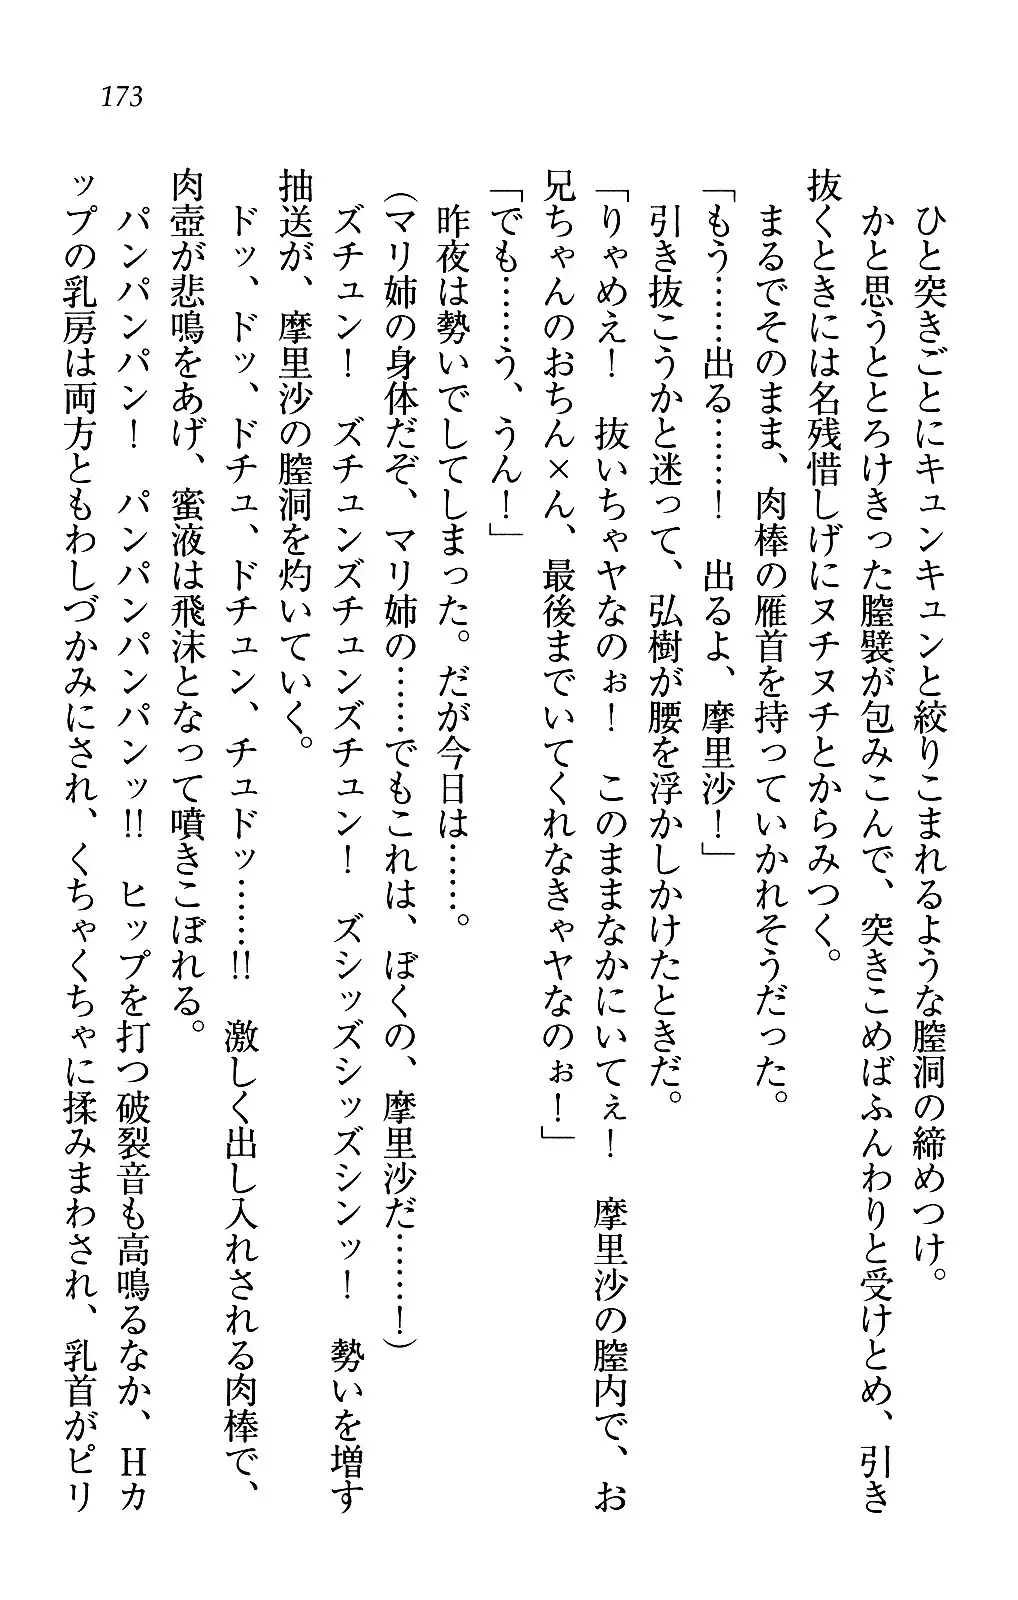 173
ひと突きごとにキュンキュンと絞りこまれるような膣洞の締めつけ。
かと思うととろけきった膣襞が包みこんで、突きこめばふんわりと受けとめ、引き
抜くときには名残惜しげにヌチヌチとからみつく。
まるでそのまま、肉棒の雁首を持っていかれそうだった。
「もう……出る……！　出るよ、摩里沙！」
引き抜こうかと迷って、弘樹が腰を浮かしかけたときだ。
「りゃめえ！　抜いちゃヤなのぉ！　このままなかにいてぇ！　摩里沙の膣内で、お
兄ちゃんのおちん×ん、最後までいてくれなきゃヤなのぉ！」
「でも……う、うん！」
昨夜は勢いでしてしまった。だが今日は……。
（マリ姉の身体だぞ、マリ姉の……でもこれは、ぼくの、摩里沙だ……！）
ズチュン！　ズチュンズチュンズチュン！　ズシッズシッズシンッ！　勢いを増す
抽送が、摩里沙の膣洞を灼いていく。
ドッ、ドッ、ドチュ、ドチュン、チュドッ……!!　激しく出し入れされる肉棒で、
肉壺が悲鳴をあげ、蜜液は飛沫となって噴きこぼれる。
パンパンパン！　パンパンパンパンッ!!　ヒップを打つ破裂音も高鳴るなか、Hカ
ップの乳房は両方ともわしづかみにされ、くちゃくちゃに揉みまわされ、乳首がピリ